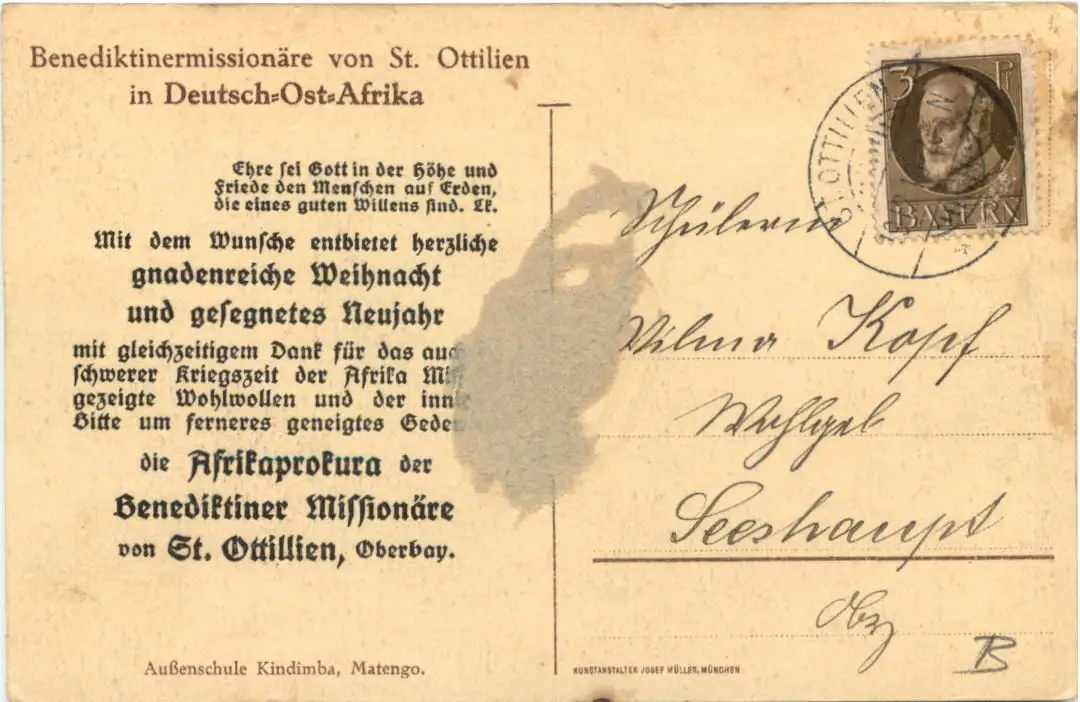 Benediktinermissionäre von St. Ottilien
in Deutsch=Ost=Afrika
Ehre sei Gott in der Höhe und
Friede den Menschen auf Erden,
die eines guten Willens sind. Lk.
Mit dem Wunsche entbietet herzliche
gnadenreiche Weihnacht
und gesegnetes Neujahr
mit gleichzeitigem Dank für das auch
schwerer Kriegszeit der Afrika
gezeigte Wohlwollen und der
Bitte um ferneres geneigtes
die Afrikaprokura der
Benediktiner Missionäre
von St. Ottillien, Oberbay.
Außenschule Kindimba, Matengo.
3 Pf
BAYERN
ST. OTTILIEN
Schülerin
Vilma Kopf
Seeshaupt
KUNSTANSTALTEN JOSEF MÜLLER, MÜNCHEN
B